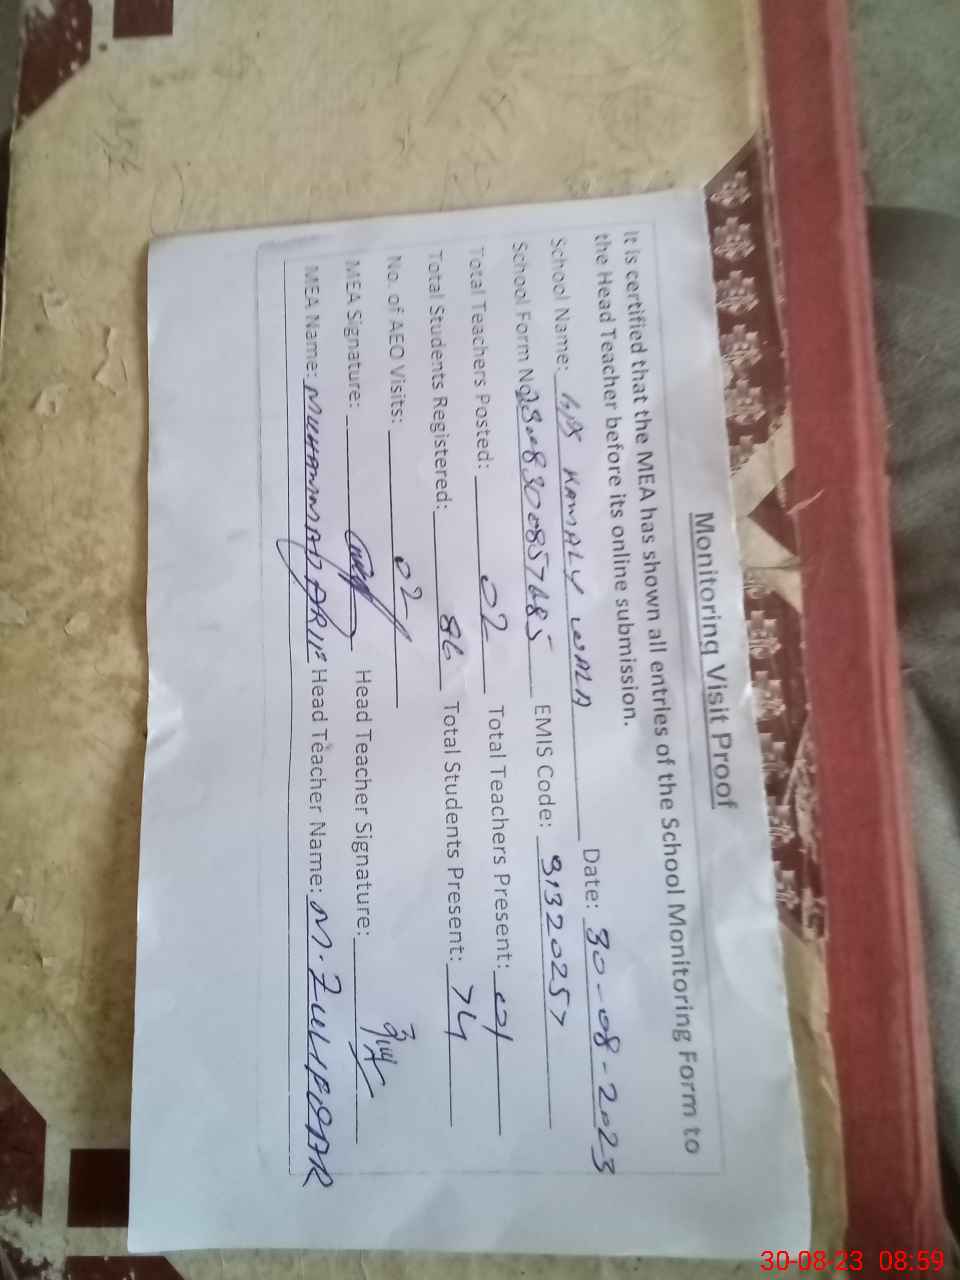 Monitoring Visit Proof
It is certified that the MEA has shown all entries of the School Monitoring Form to
the Head Teacher before its online submission.
School Name: GPS KAMALY WALA Date: 30-08-2023
School Form No. EMIS Code: 31320257
Total Teachers Posted: 02 Total Teachers Present: 01
Total Students Registered: 86 Total Students Present: 74
No. of AEO Visits: 02
MEA Signature: Head Teacher Signature:
MEA Name: MUHAMMAD ARIF Head Teacher Name: M. ZULIFQAR
30-08-23 08:59